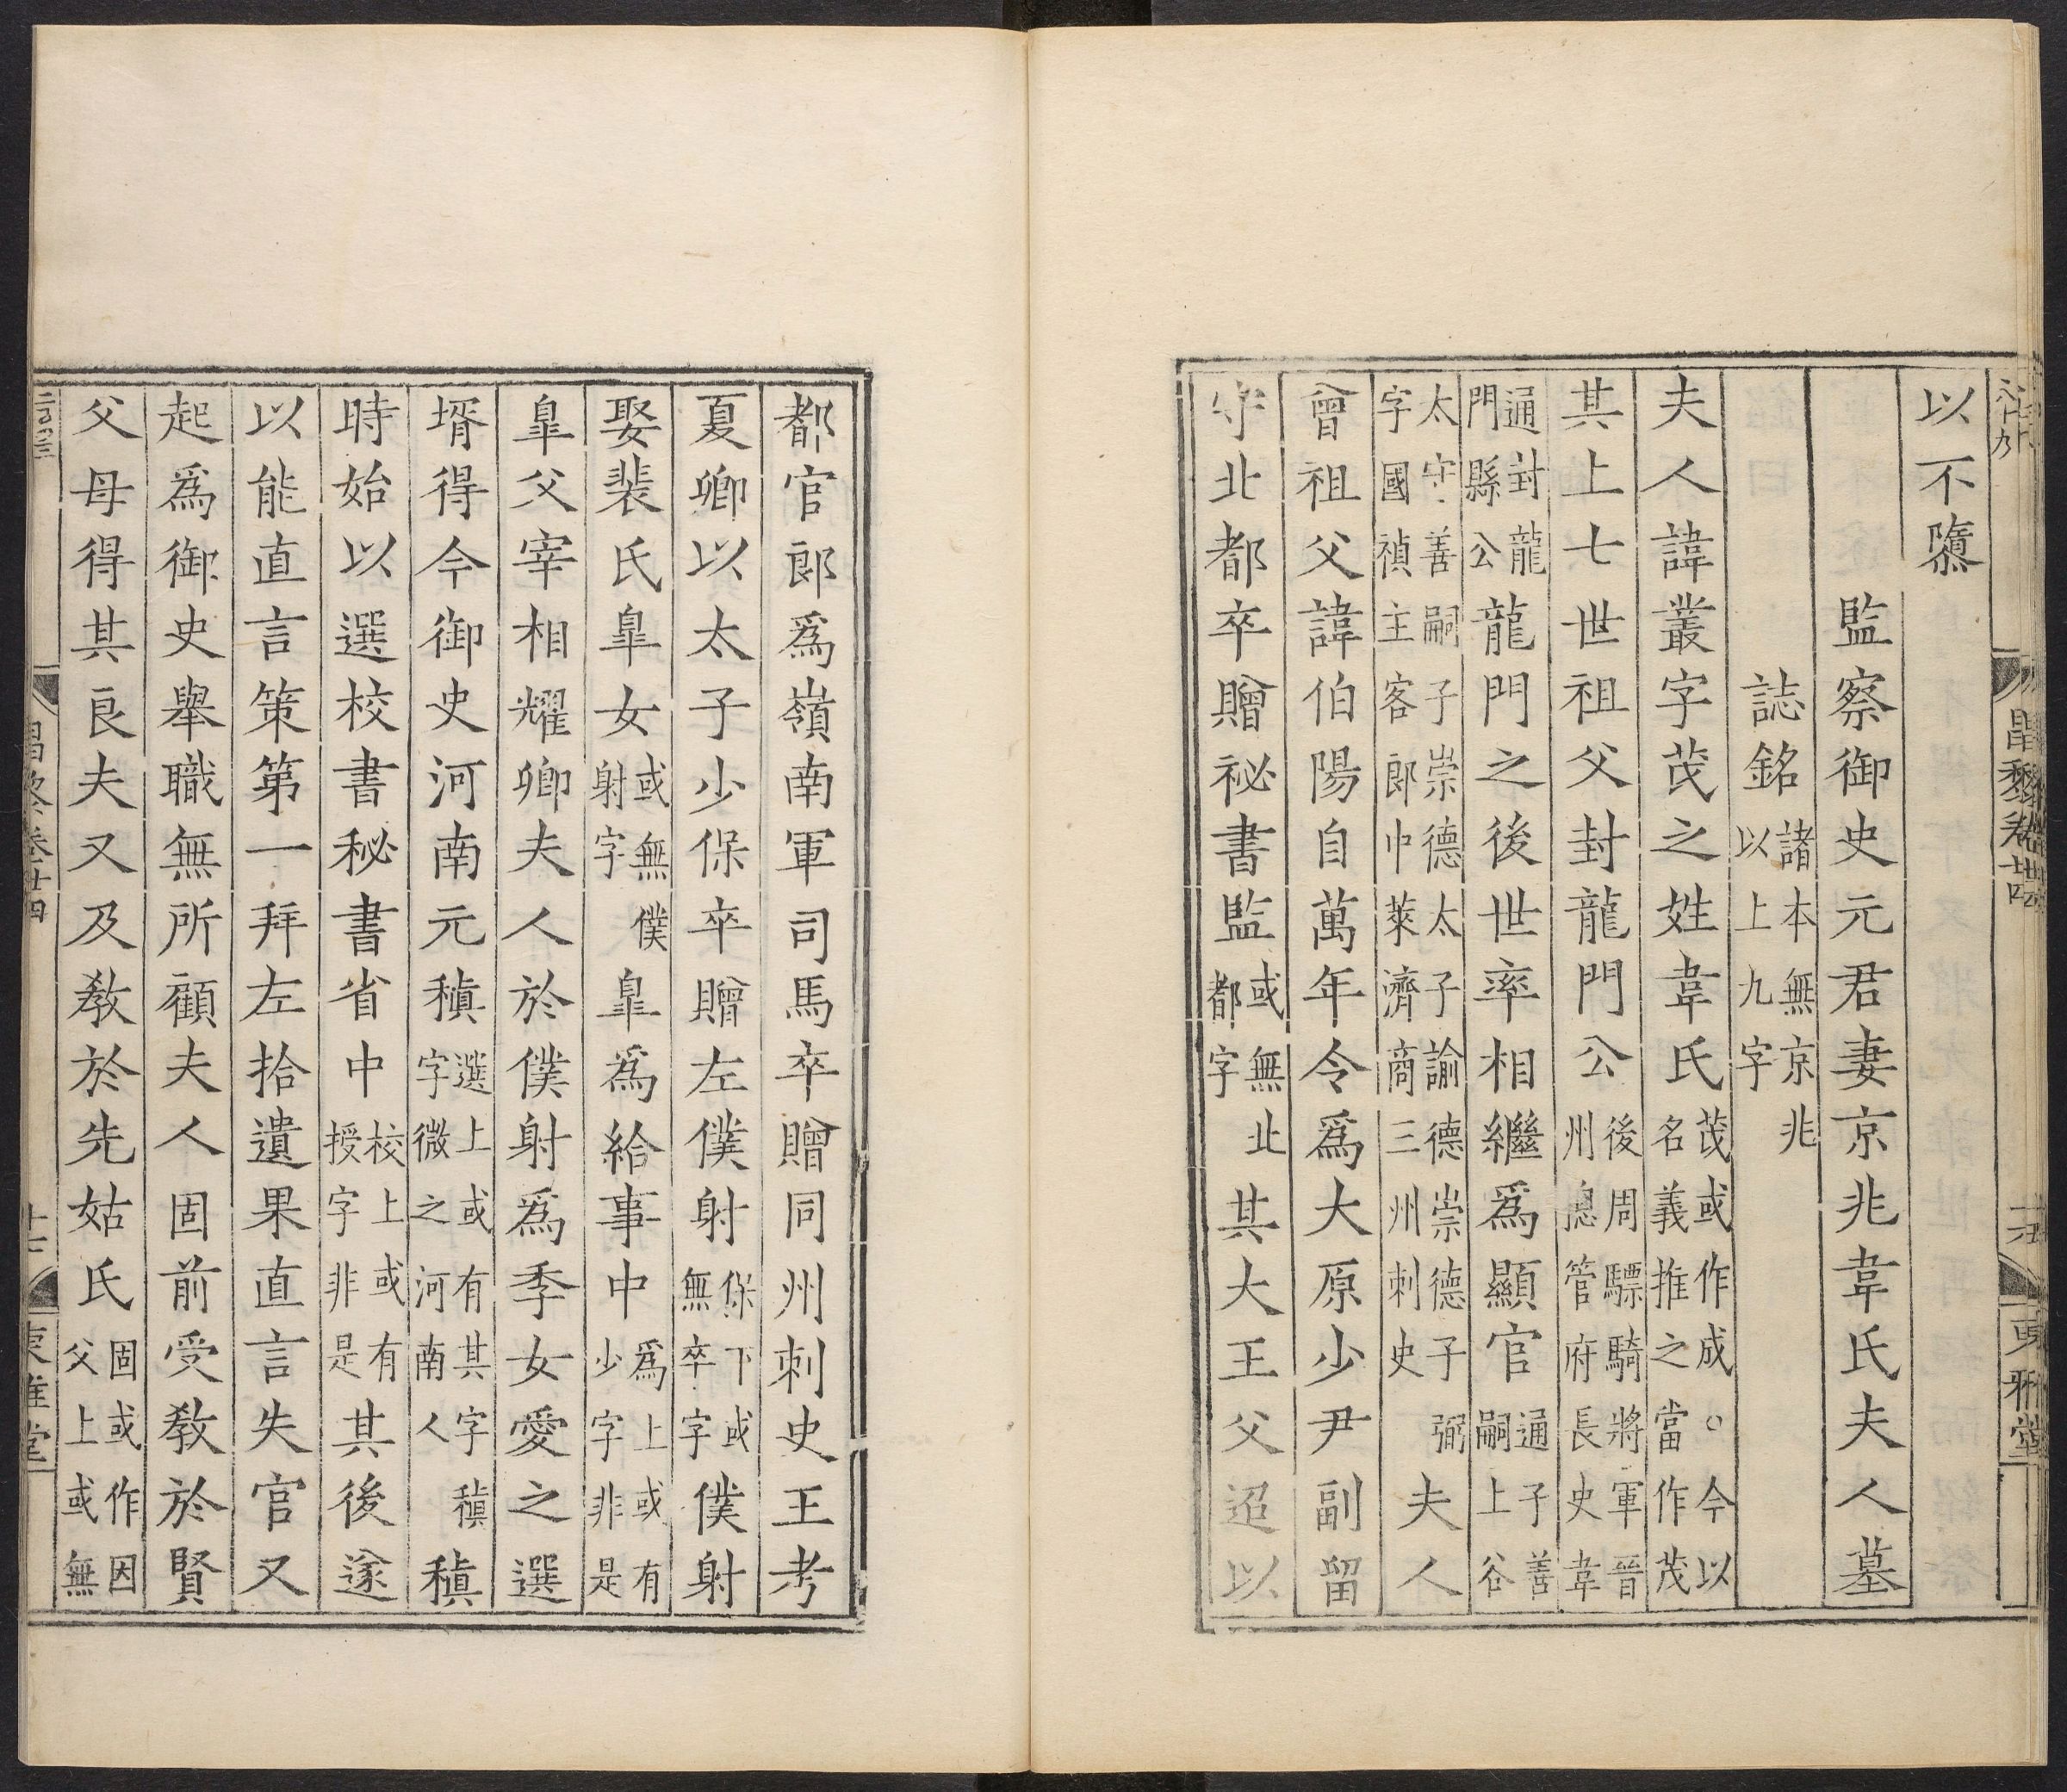 以不隳
監察御史元君妻京兆韋氏夫人墓
誌銘諸本無京兆以上九字
夫人諱叢字茂之姓韋氏茂或作成○今以名義推之當作茂
其上七世祖父封龍門公後周驃騎將軍晉州總管府長史韋
通封龍門縣公龍門之後世率相繼爲顯官通子善嗣上谷
太守善嗣子崇德太子諭德崇德子弼字國禎主客郎中萊濟商三州刺史夫人
曾祖父諱伯陽自萬年令爲大原少尹副留
守北都卒贈祕書監或無北都字其大王父迢以
昌黎卷廿四
東雅堂
都官郎爲嶺南軍司馬卒贈同州刺史王考
夏卿以太子少保卒贈左僕射保下或無卒字僕射
娶裴氏皐女或無僕射字皐爲給事中爲上或有少字非是
皐父宰相耀卿夫人於僕射爲季女愛之選
壻得今御史河南元稹選上或有其字稹字微之河南人稹
時始以選校書秘書省中校上或有授字非是其後遂
以能直言策第一拜左拾遺果直言失官又
起爲御史舉職無所顧夫人固前受教於賢
父母得其良夫又及教於先姑氏固或作因父上或無
昌黎卷廿四
東雅堂